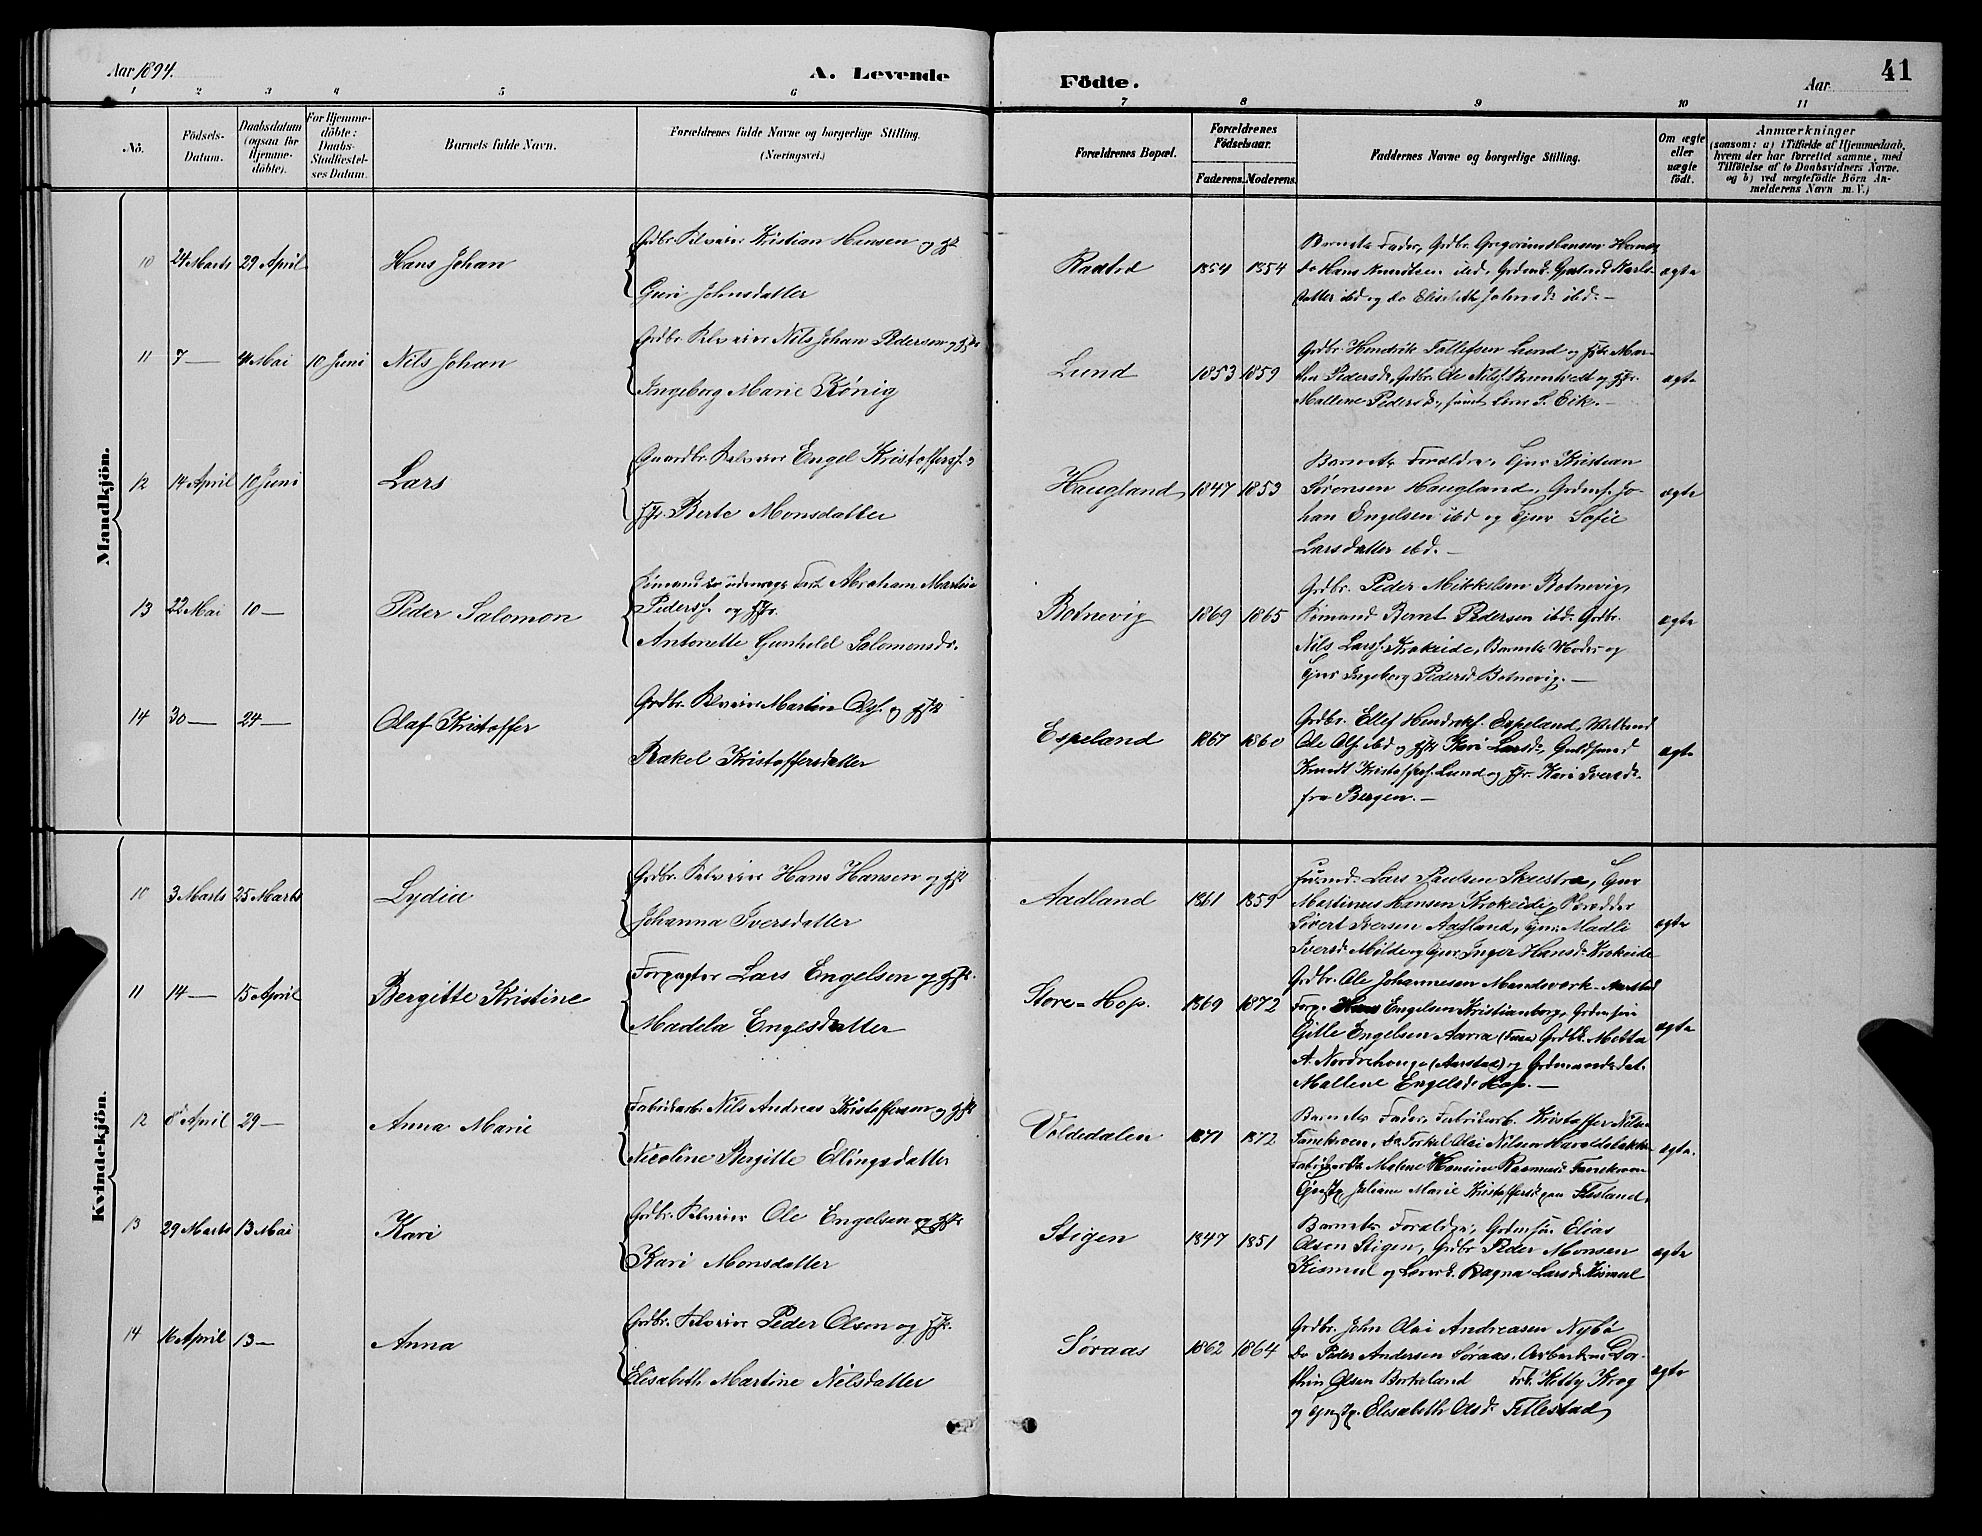 Aar 1894.
A. Levende
Födte.
Aar
41
1 2 3 4 5 6 7 8 9 10 11
Nô.
Födsels-
Datum.
Daabsdatum
(ogsaa for
Hjemme-
döbte).
For Hjemme-
döbte:
Daabs-
Stadfæstel-
ses Datum.
Barnets fulde Navn.
Forældrenes fulde Navne og borgerlige Stilling.
(Næringsvei.)
Forældrenes Bopæl.
Forældrenes
Födselsaar.
Faderens. Moderens.
Faddernes Navne og borgerlige Stilling.
Om ægte
eller
uægte
födt.
Anmærkninger
(saasom: a) i Tilfælde af Hjemmedaab,
hvem der har forrettet samme, med
Tilföielse af to Daabsvidners Navne.
og b) ved uægtefödte Börn An-
melderens Navn m. V.)
Mandkjön.
10 24 Marts 29 April Hans Johan
Grdbr. Selveier Kristian Hansen og Hst
Guri Johnsdatter
Raatræ 1854 1854
Barnets Fader, Grdbr. Gregorius Hansen
Do Hans Knudtsen ibd, Grdmd. Karls-
datter ibd og do Elisabeth Johnsd. ibd. —
ægte
11 7 — 4 Mai 10 Juni Nils Johan
Grdbr. Selveier Nils Johan Pedersen og Hst
Ingeborg Marie König
Lund 1853 1859
Grdbr. Hendrik Tollefsen Lund og Hst. Mar-
tha Pedersd., Grdbr. Ole Nilsf. og Hst.
Mallene Pedersd., samt Lars S. Eik. —
ægte
12 14 April 10 Juni Lars
Gaardbr. Selveier Engel Kristoffersf. og
Hst. Berte Monsdatter
Haugland 1847 1853
Barnets Forældre, Gjnr Kristian
Sørensen Haugland, Grdmsf. Jo-
han Engelsen ibd og Gjnr Sofie
Larsdatter ibd. —
ægte
13 22 Mai 10 — Peder Salomon
Sømand i udenrigs Fart Abraham Martin
Pedersf. og Hst.
Antonette Gunhild Salomonsdr.
Botnevig 1869 1865
Grdbr. Peder Mikkelsen Botnevig,
Sømand Bernt Pedersen ibd. Grdbr.
Nils Larsf. Krokeide, Barnets Moder og
Gjnr Ingeborg Pedersd Botnevig. —
ægte
14 30 — 24 — Olaf Kristoffer
Grdbr. Selveier Martin Olsf. og Hst
Rakel Kristoffersdatter
Espeland 1867 1860
Grdbr. Ellef Hendriksf. Espeland,
Ole Olsf. ibd og Hst Kari Larsd., Guldsmed
Knudt Kristoffersf. Lund og Hst. Kari Iversdr.
fra Bergen. —
ægte
Kvindekjön.
10 3 Marts 25 Marts Lydia
Grdbr. Selveier Hans Hansen og Hst
Johanna Iversdatter
Aadland 1861 1859
Husmd. Lars Paulsen Skustræ, Gjnr
Martinus Hansen Krokeide, Skrædder
Sivert Iversen Aadland, Gjnr. Madli
Iversd. Milde og Gjnr. Inger Hansd. Krokeide
ægte
11 14 — 15 April Bergitte Kristine
Forpagter Lars Engelsen og Hst.
Madela Engelsdatter
Store-Hop. 1869 1872
Grdbr. Ole Johannesen Mandsverk-Aarstad
Forp. Hans Engelsen Kristianborg, Grdmsøn
Gitle Engelsen Aarra (Fana) Grdbk. Metta
A. Nordrehouge (Aarstad) og Grdmandsdat.
Mallene Engelsd. Hop. —
ægte
12 8 April 29 — Anna Marie
Fabrikarb. Nils Andreas Kristofferson og Hst
Nicoline Bergitte Ellingsdatter
Voldedalen 1871 1872
Barnets Fader, Fabrikarb. Kristoffer Nilsen
Fanekroen, Do Torkel Olai Nilsen Haraldsbakken
Malene Hansine Rasmusd. Fanekroen
Juliane Marie Kristoffersd. paa Flesland.
ægte.
13 29 Marts 13 Mai Kari
Grdbr. Selveier Ole Engelsen og Hst
Kari Monsdatter
Stigen 1847 1851
Barnets Forældre, Grdmsøn Elias
Olsen Stigen, Grdbr Peder Monsen
Kismul og Ragna Larsd. Kismul
ægte
14 16 April 13 — Anna
Grdbr. Selveier Peder Olsen og Hst.
Elisabeth Martine Nilsdatter
Søraas 1862 1864
Grdbr. John Olai Andreasen Nybø
Do Peder Andersen Søraas, Dor-
thin Olsen Birkeland Frk. Hetty Krog
og Elisabeth Olsd. Titlestad,
ægte